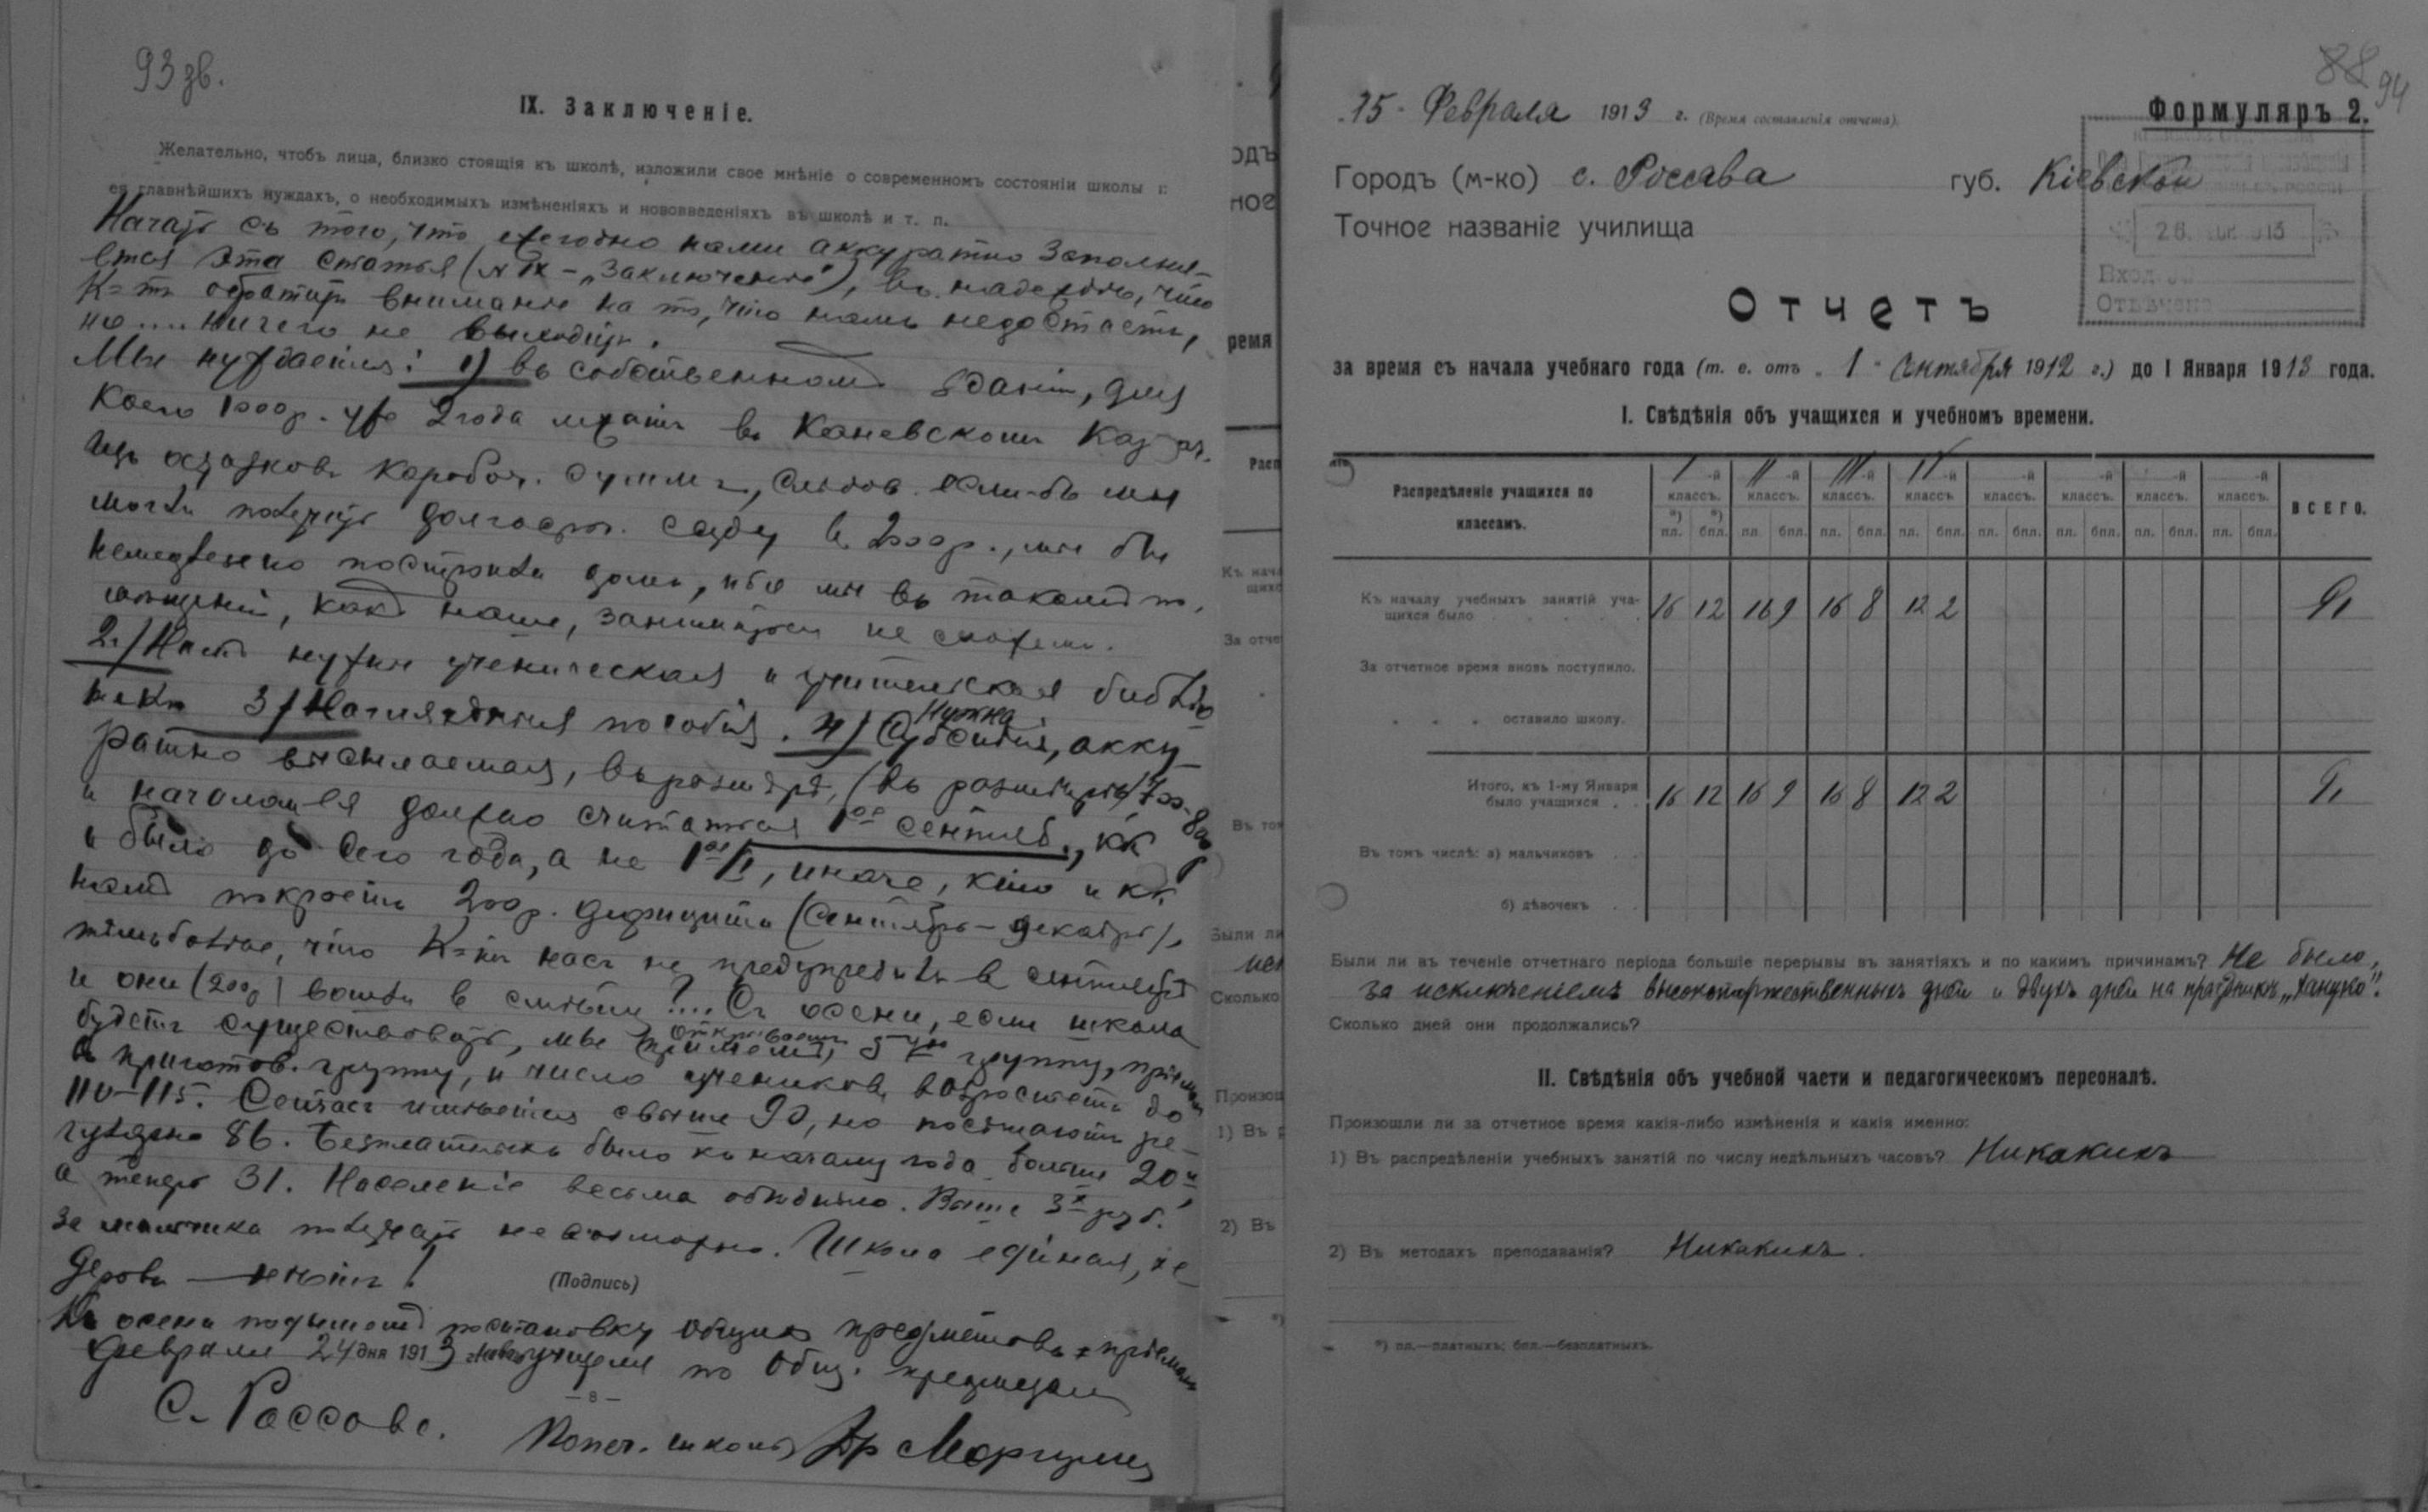 93 зв.
IX. Заключеніе.
Желательно, чтобъ лица, близко стоящія къ школѣ, изложили свое мнѣніе о современномъ состояніи школы и
ея главнѣйшихъ нуждахъ, о необходимыхъ измѣненіяхъ и нововведеніяхъ въ школѣ и т. п.
Начать съ того, что ежегодно нами аккуратно заполня-
ется эта статья (№ IX – „Заключеніе"), въ надеждѣ, что
К-тъ обратитъ вниманіе на то, что намъ недостаетъ,
но.... ничего не выходитъ.
Мы нуждаемся: 1) въ собственномъ зданіи, для
коего 1000 р. уже 2 года лежатъ въ Каневскомъ Казнач.
изъ остатковъ коробоч. суммъ, слѣдов. если-бъ мы
могли получить долгосроч. ссуду въ 2000 р., мы бы
немедленно построили домъ, ибо мы въ такомъ по-
мѣщеніи, какъ наше, заниматься не сможемъ.
2) Намъ нужны ученическая и учительская библіо
теки 3) Наглядныя пособія. 4) Нужна субсидія, акку-
ратно высылаемая, въ размѣрѣ (въ размѣрѣ) 700-800 р
и началомъ ея должно считаться 1ое сентяб., кк
и было до сего года, а не 1ое/I, иначе, кто и кк
намъ покроетъ 200 р. дефицита (Сентябрь – декабрь),
тѣмъ болѣе, что К-тъ насъ не предупредилъ въ сентябрѣ
и они (200 р) вошли въ смѣту?... Съ осени, если школа
будетъ существовать, мы открываемъ 5ую группу, примемъ
въ приготов. группу, и число учениковъ возростетъ до
110–115. Сейчасъ имѣется свыше 90, но посѣщаютъ ре-
гулярно 86. Безплатныхъ было къ началу года больше 20и,
а теперь 31. Населеніе весьма обѣднѣло. Выше 3х руб.
за мальчика получать невозможно. Школа единая, хе
деровъ — нѣтъ!
(Подпись)
Къ осени подымемъ постановку общихъ предметовъ
Февраля 24 дня 1913 учителя по общ. предметамъ
— 8 —
С. Россава.
Попеч. школы Др Маргулисъ
88 94
15 - Февраля 1913 г. (Время составленія отчета).
Формуляръ 2.
Городъ (м-ко) с. Россава губ. Кіевской
Точное названіе училища
26. 1913
Вход. №
Отвѣчено
Отчетъ
за время съ начала учебнаго года (т. е. отъ „ 1 - Сентября 1912 г.) до 1 Января 1913 года.
I. Свѣдѣнія объ учащихся и учебномъ времени.
Распредѣленіе учащихся по классамъ.
I -й классъ. II -й классъ. III -й классъ. IV -й классъ. -й классъ. -й классъ. -й классъ. -й классъ. ВСЕГО.
*) пл. *) бпл. пл. бпл. пл. бпл. пл. бпл. пл. бпл. пл. бпл. пл. бпл. пл. бпл.
Къ началу учебныхъ занятій уча-
щихся было 16 12 16 9 16 8 12 2 91
За отчетное время вновь поступило.
„ „ „ оставило школу.
Итого, къ 1-му Января
было учащихся . . 16 12 16 9 16 8 12 2 91
Въ томъ числѣ: а) мальчиковъ . .
б) дѣвочекъ . .
Были ли въ теченіе отчетнаго періода большіе перерывы въ занятіяхъ и по какимъ причинамъ? Не было,
за исключеніемъ высокоторжественныхъ дней и двухъ дней на праздникъ „Хануко".
Сколько дней они продолжались?
II. Свѣдѣнія объ учебной части и педагогическомъ персоналѣ.
Произошли ли за отчетное время какія-либо измѣненія и какія именно:
1) Въ распредѣленіи учебныхъ занятій по числу недѣльныхъ часовъ? Никакихъ
2) Въ методахъ преподаванія? Никакихъ.
*) пл.—платныхъ; бпл.—безплатныхъ.